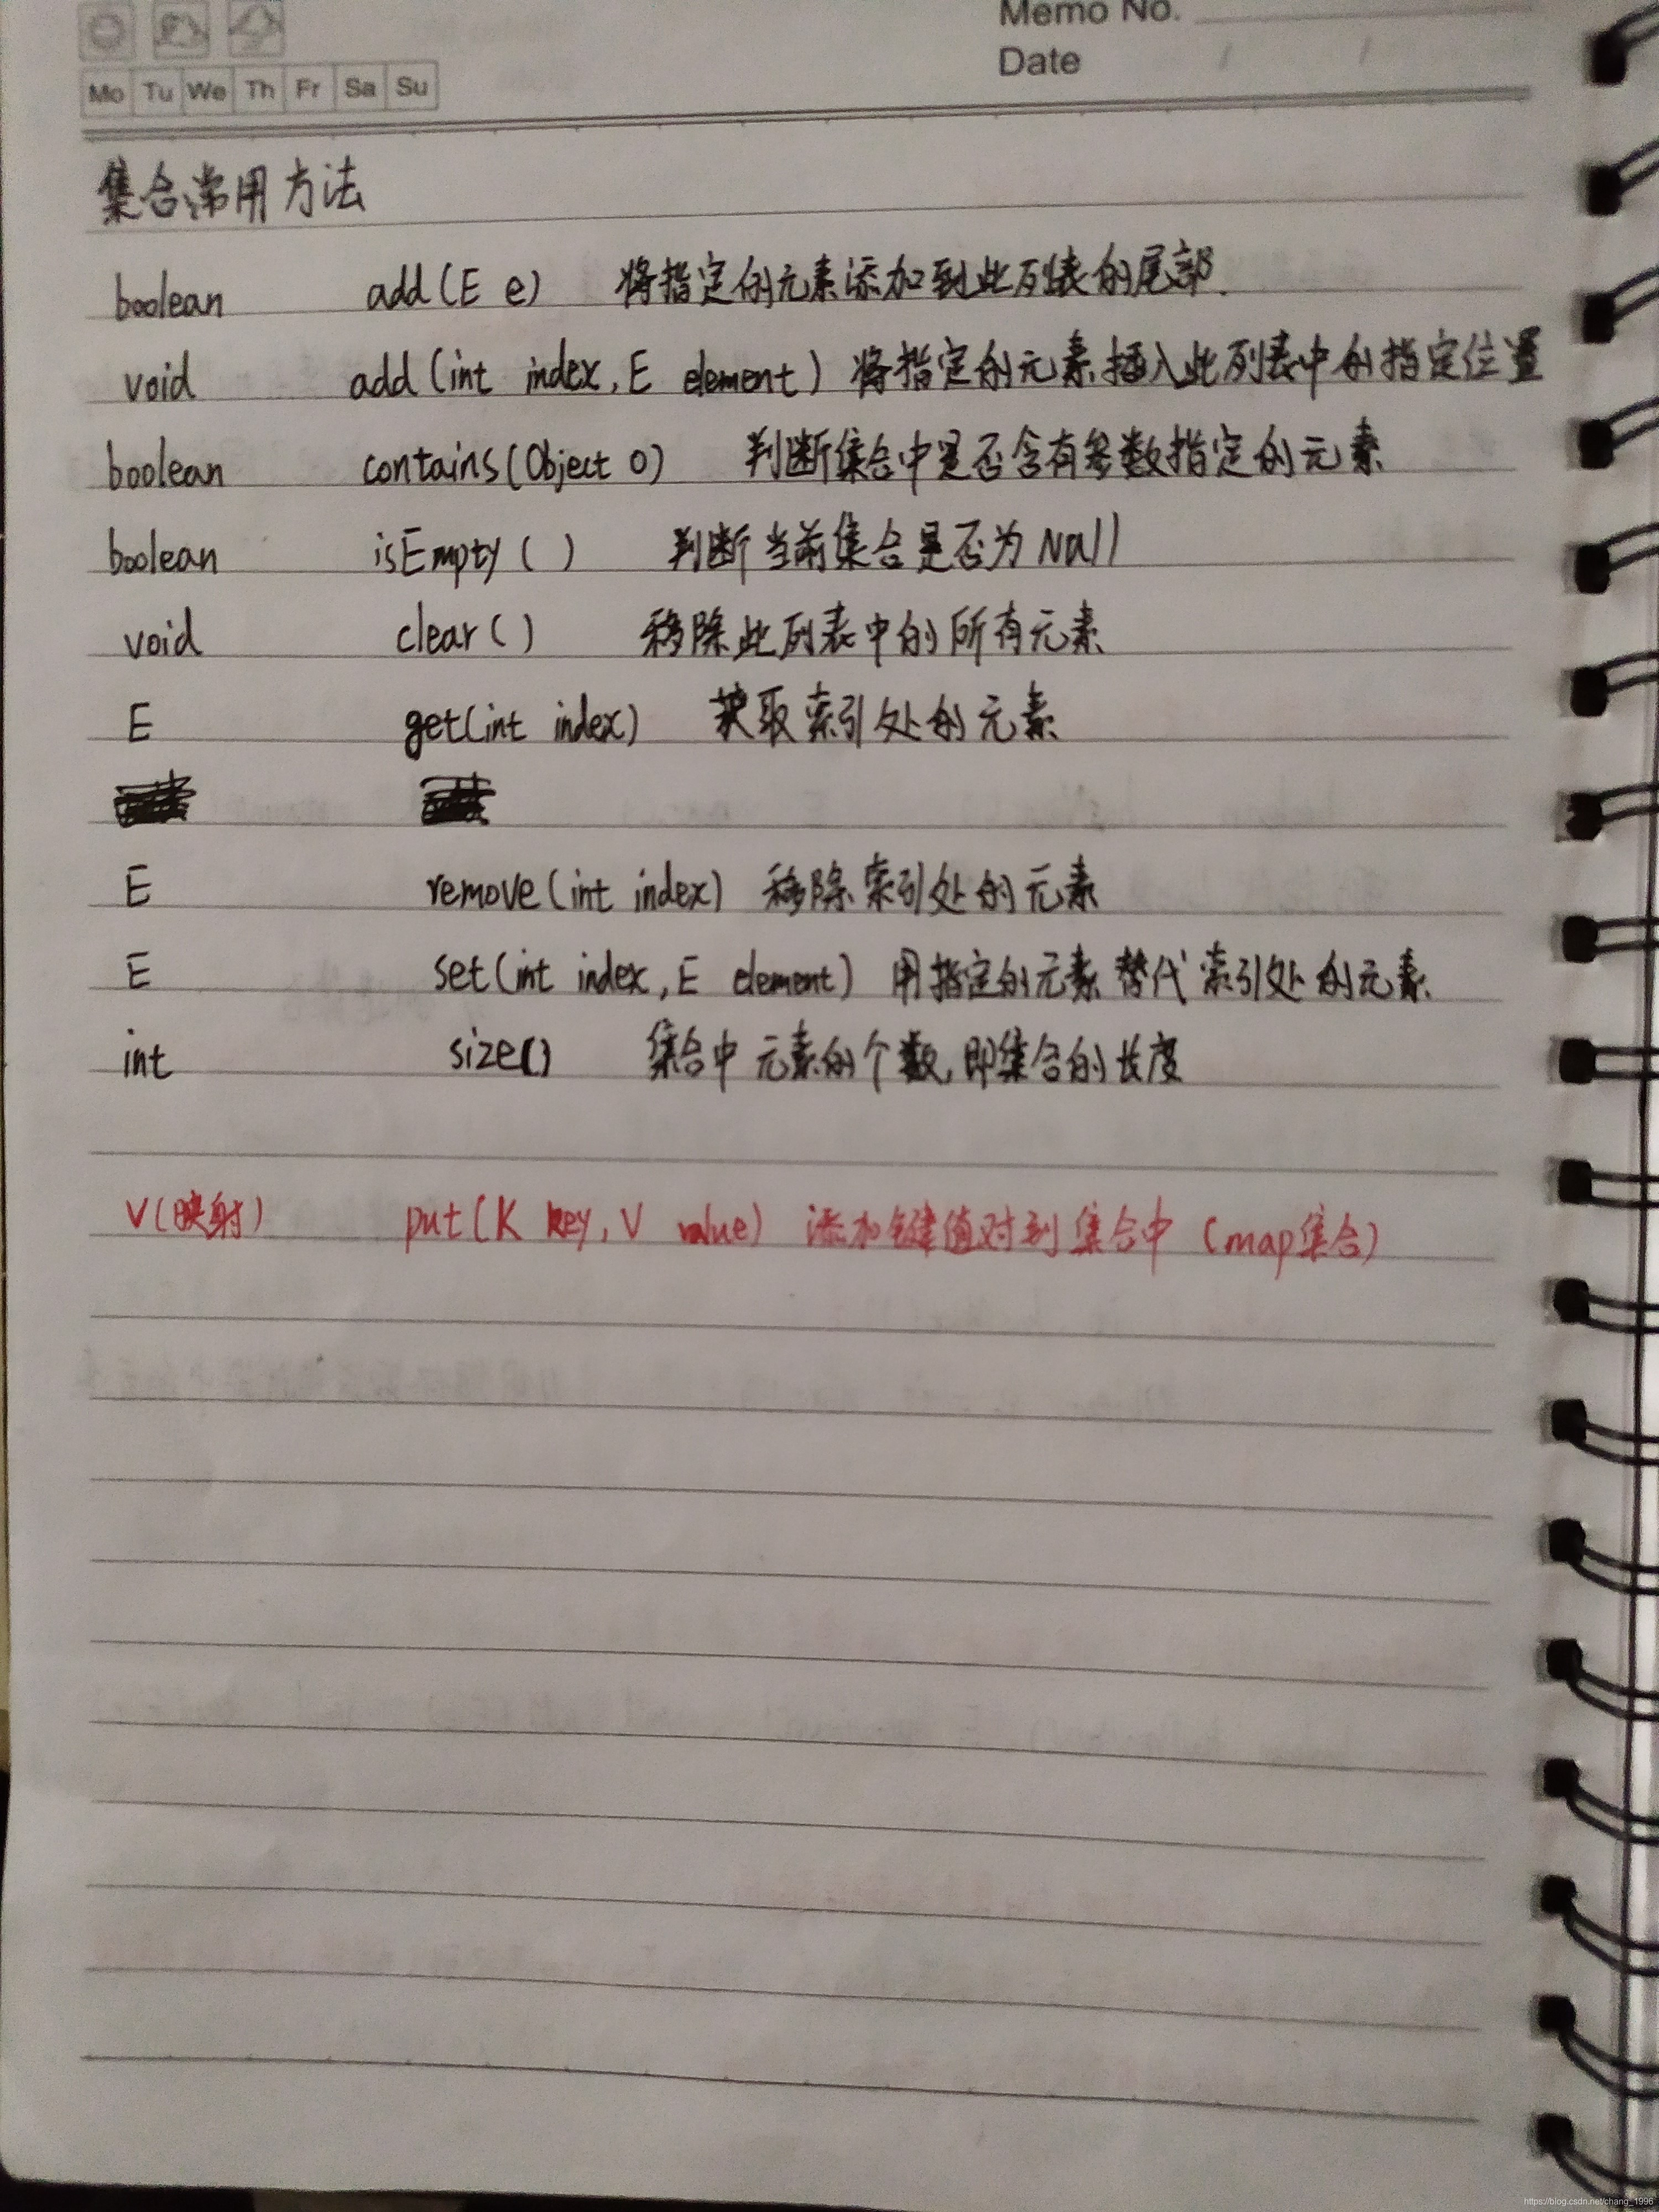 Memo No.
Date / /
Mo Tu We Th Fr Sa Su
集合常用方法
boolean add(E e) 将指定的元素添加到此列表的尾部.
void add(int index,E element) 将指定的元素插入此列表中的指定位置
boolean contains(Object O) 判断集合中是否含有参数指定的元素
boolean isEmpty ( ) 判断当前集合是否为Null
void clear( ) 移除此列表中的所有元素
E get(int index) 获取索引处的元素
E remove(int index) 移除索引处的元素
E set(int index,E element) 用指定的元素替代索引处的元素
int size() 集合中元素的个数,即集合的长度
V(映射) put(K key, V value) 添加键值对到集合中 (map集合)
https://blog.csdn.net/chang_1996